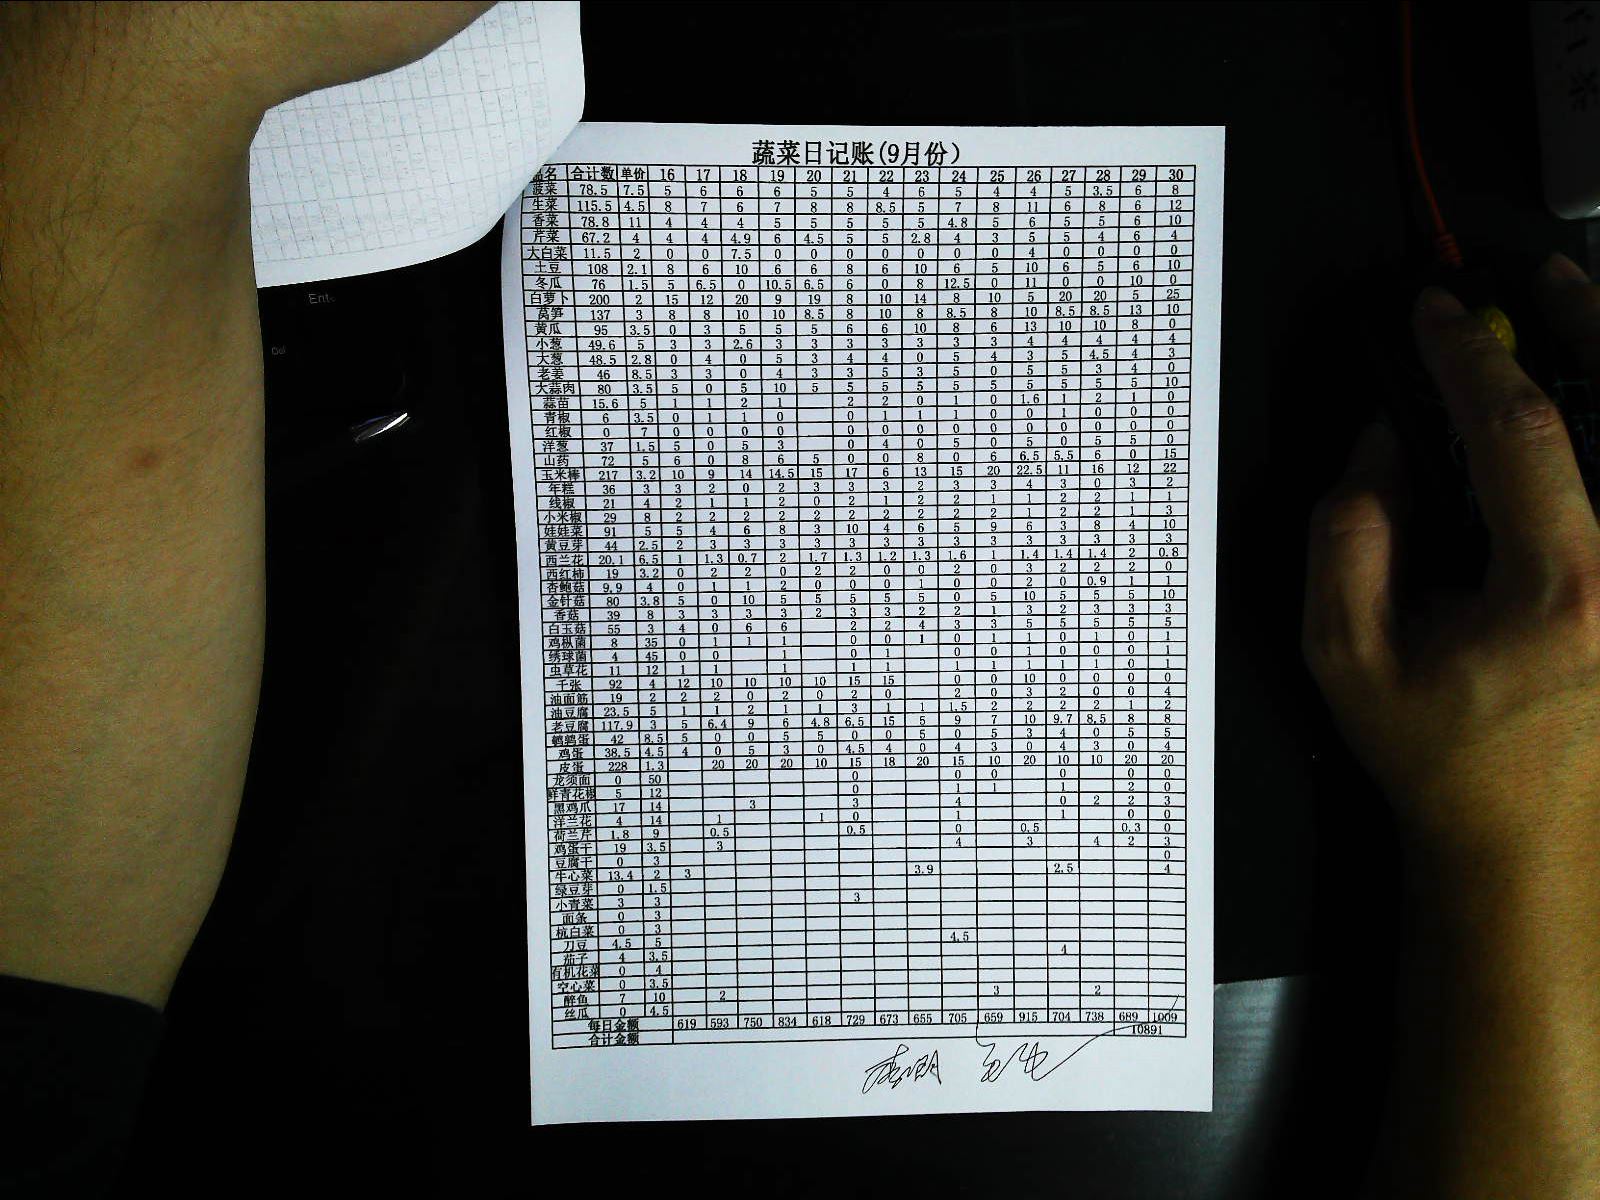 蔬菜日记账(9月份)
品名 合计数 单价 16 17 18 19 20 21 22 23 24 25 26 27 28 29 30
菠菜 78.5 7.5 5 6 6 6 5 5 4 6 5 4 4 5 3.5 6 8
生菜 115.5 4.5 8 7 6 7 8 8 8.5 5 7 8 11 6 8 6 12
香菜 78.8 11 4 4 4 5 5 5 5 5 4.8 5 6 5 5 6 10
芹菜 67.2 4 4 4 4.9 6 4.5 5 5 2.8 4 3 5 5 4 6 4
大白菜 11.5 2 0 0 7.5 0 0 0 0 0 0 0 4 0 0 0 0
土豆 108 2.1 8 6 10 6 6 8 6 10 6 5 10 6 5 6 10
冬瓜 76 1.5 5 6.5 0 10.5 6.5 6 0 8 12.5 0 11 0 0 10 0
白萝卜 200 2 15 12 20 9 19 8 10 14 8 10 5 20 20 5 25
莴笋 137 3 8 8 10 10 8.5 8 10 8 8.5 8 10 8.5 8.5 13 10
黄瓜 95 3.5 0 3 5 5 5 6 6 10 8 6 13 10 10 8 0
小葱 49.6 5 3 3 2.6 3 3 3 3 3 3 3 4 4 4 4 4
大葱 48.5 2.8 0 4 0 5 3 4 4 0 5 4 3 5 4.5 4 3
老姜 46 8.5 3 3 0 4 3 3 5 3 5 0 5 5 3 4 0
大蒜肉 80 3.5 5 0 5 10 5 5 5 5 5 5 5 5 5 5 10
蒜苗 15.6 5 1 1 2 1 2 2 0 1 0 1.6 1 2 1 0
青椒 6 3.5 0 1 1 0 0 1 1 1 0 0 1 0 0 0
红椒 0 7 0 0 0 0 0 0 0 0 0 0 0 0 0 0
洋葱 37 1.5 5 0 5 3 0 4 0 5 0 5 0 5 5 0
山药 72 5 6 0 8 6 5 0 0 8 0 6 6.5 5.5 6 0 15
玉米棒 217 3.2 10 9 14 14.5 15 17 6 13 15 20 22.5 11 16 12 22
年糕 36 3 3 2 0 2 3 3 3 2 3 3 4 3 0 3 2
线椒 21 4 2 1 1 2 0 2 1 2 2 1 1 2 2 1 1
小米椒 29 8 2 2 2 2 2 2 2 2 2 2 1 2 2 1 3
娃娃菜 91 5 5 4 6 8 3 10 4 6 5 9 6 3 8 4 10
黄豆芽 44 2.5 2 3 3 3 3 3 3 3 3 3 3 3 3 3 3
西兰花 20.1 6.5 1 1.3 0.7 2 1.7 1.3 1.2 1.3 1.6 1 1.4 1.4 1.4 2 0.8
西红柿 19 3.2 0 2 2 0 2 2 0 0 2 0 3 2 2 2 0
杏鲍菇 9.9 4 0 1 1 2 0 0 0 1 0 0 2 0 0.9 1 1
金针菇 80 3.8 5 0 10 5 5 5 5 5 0 5 10 5 5 5 10
香菇 39 8 3 3 3 3 2 3 3 2 2 1 3 2 3 3 3
白玉菇 55 3 4 0 6 6 2 2 4 3 3 5 5 5 5 5
鸡枞菌 8 35 0 1 1 1 0 0 1 0 1 1 0 1 0 1
绣球菌 4 45 0 0 1 0 1 0 0 1 0 0 0 1
虫草花 11 12 1 1 1 1 1 1 1 1 1 1 0 1
千张 92 4 12 10 10 10 10 15 15 0 0 10 0 0 0 0
油面筋 19 2 2 2 0 2 0 2 0 2 0 3 2 0 0 4
油豆腐 23.5 5 1 1 2 1 1 3 1 1 1.5 2 2 2 2 1 2
老豆腐 117.9 3 5 6.4 9 6 4.8 6.5 15 5 9 7 10 9.7 8.5 8 8
鹌鹑蛋 42 8.5 5 0 0 5 5 0 0 5 0 5 3 4 0 5 5
鸡蛋 38.5 4.5 4 0 5 3 0 4.5 4 0 4 3 0 4 3 0 4
皮蛋 228 1.3 20 20 20 10 15 18 20 15 10 20 10 10 20 20
龙须面 0 50 0 0 0 0 0 0
鲜青花椒 5 12 0 1 1 1 2 0
黑鸡爪 17 14 3 3 4 0 2 2 3
洋兰花 4 14 1 1 0 1 1 0 0
荷兰芹 1.8 9 0.5 0.5 0 0.5 0.3 0
鸡蛋干 19 3.5 3 4 3 4 2 3
豆腐干 0 3 0
牛心菜 13.4 2 3 3.9 2.5 4
绿豆芽 0 1.5
小青菜 3 3 3
面条 0 3
杭白菜 0 3
刀豆 4.5 5 4.5
茄子 4 3.5 4
有机花菜 0 4
空心菜 0 3.5
醉鱼 7 10 2 3 2
丝瓜 0 4.5
每日金额 619 593 750 834 618 729 673 655 705 659 915 704 738 689 1009
合计金额 10891
Ent
Del